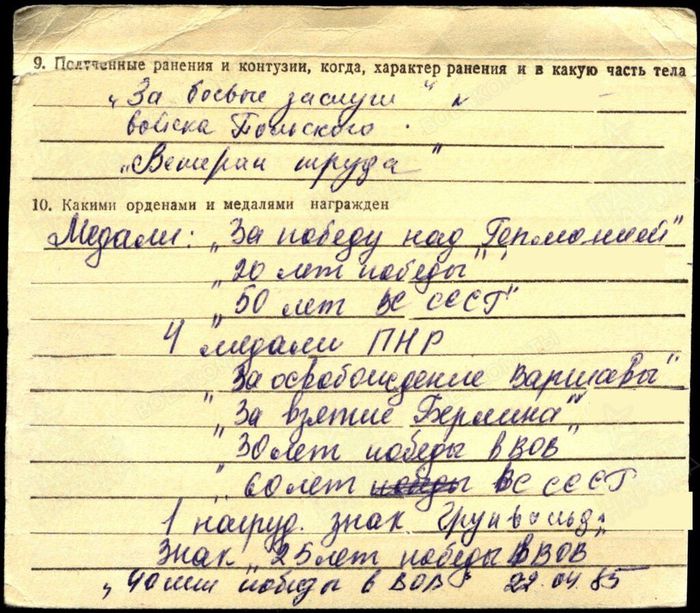 9. Полученные ранения и контузии, когда, характер ранения и в какую часть тела
„За боевые заслуги“ и
войска Польского.
„Ветеран труда“
10. Какими орденами и медалями награжден
Медали: „За победу над Германией“
„20 лет победы“
„50 лет ВС СССР“
4 медали ПНР
„За освобождение Варшавы“
„За взятие Берлина“
„30 лет победы в ВОВ“
„60 лет победы ВС СССР
1 нагруд. знак. Грунвальд„
Знак „25 лет победы в ВОВ
„40 лет победы в ВОВ“ 22.04.85